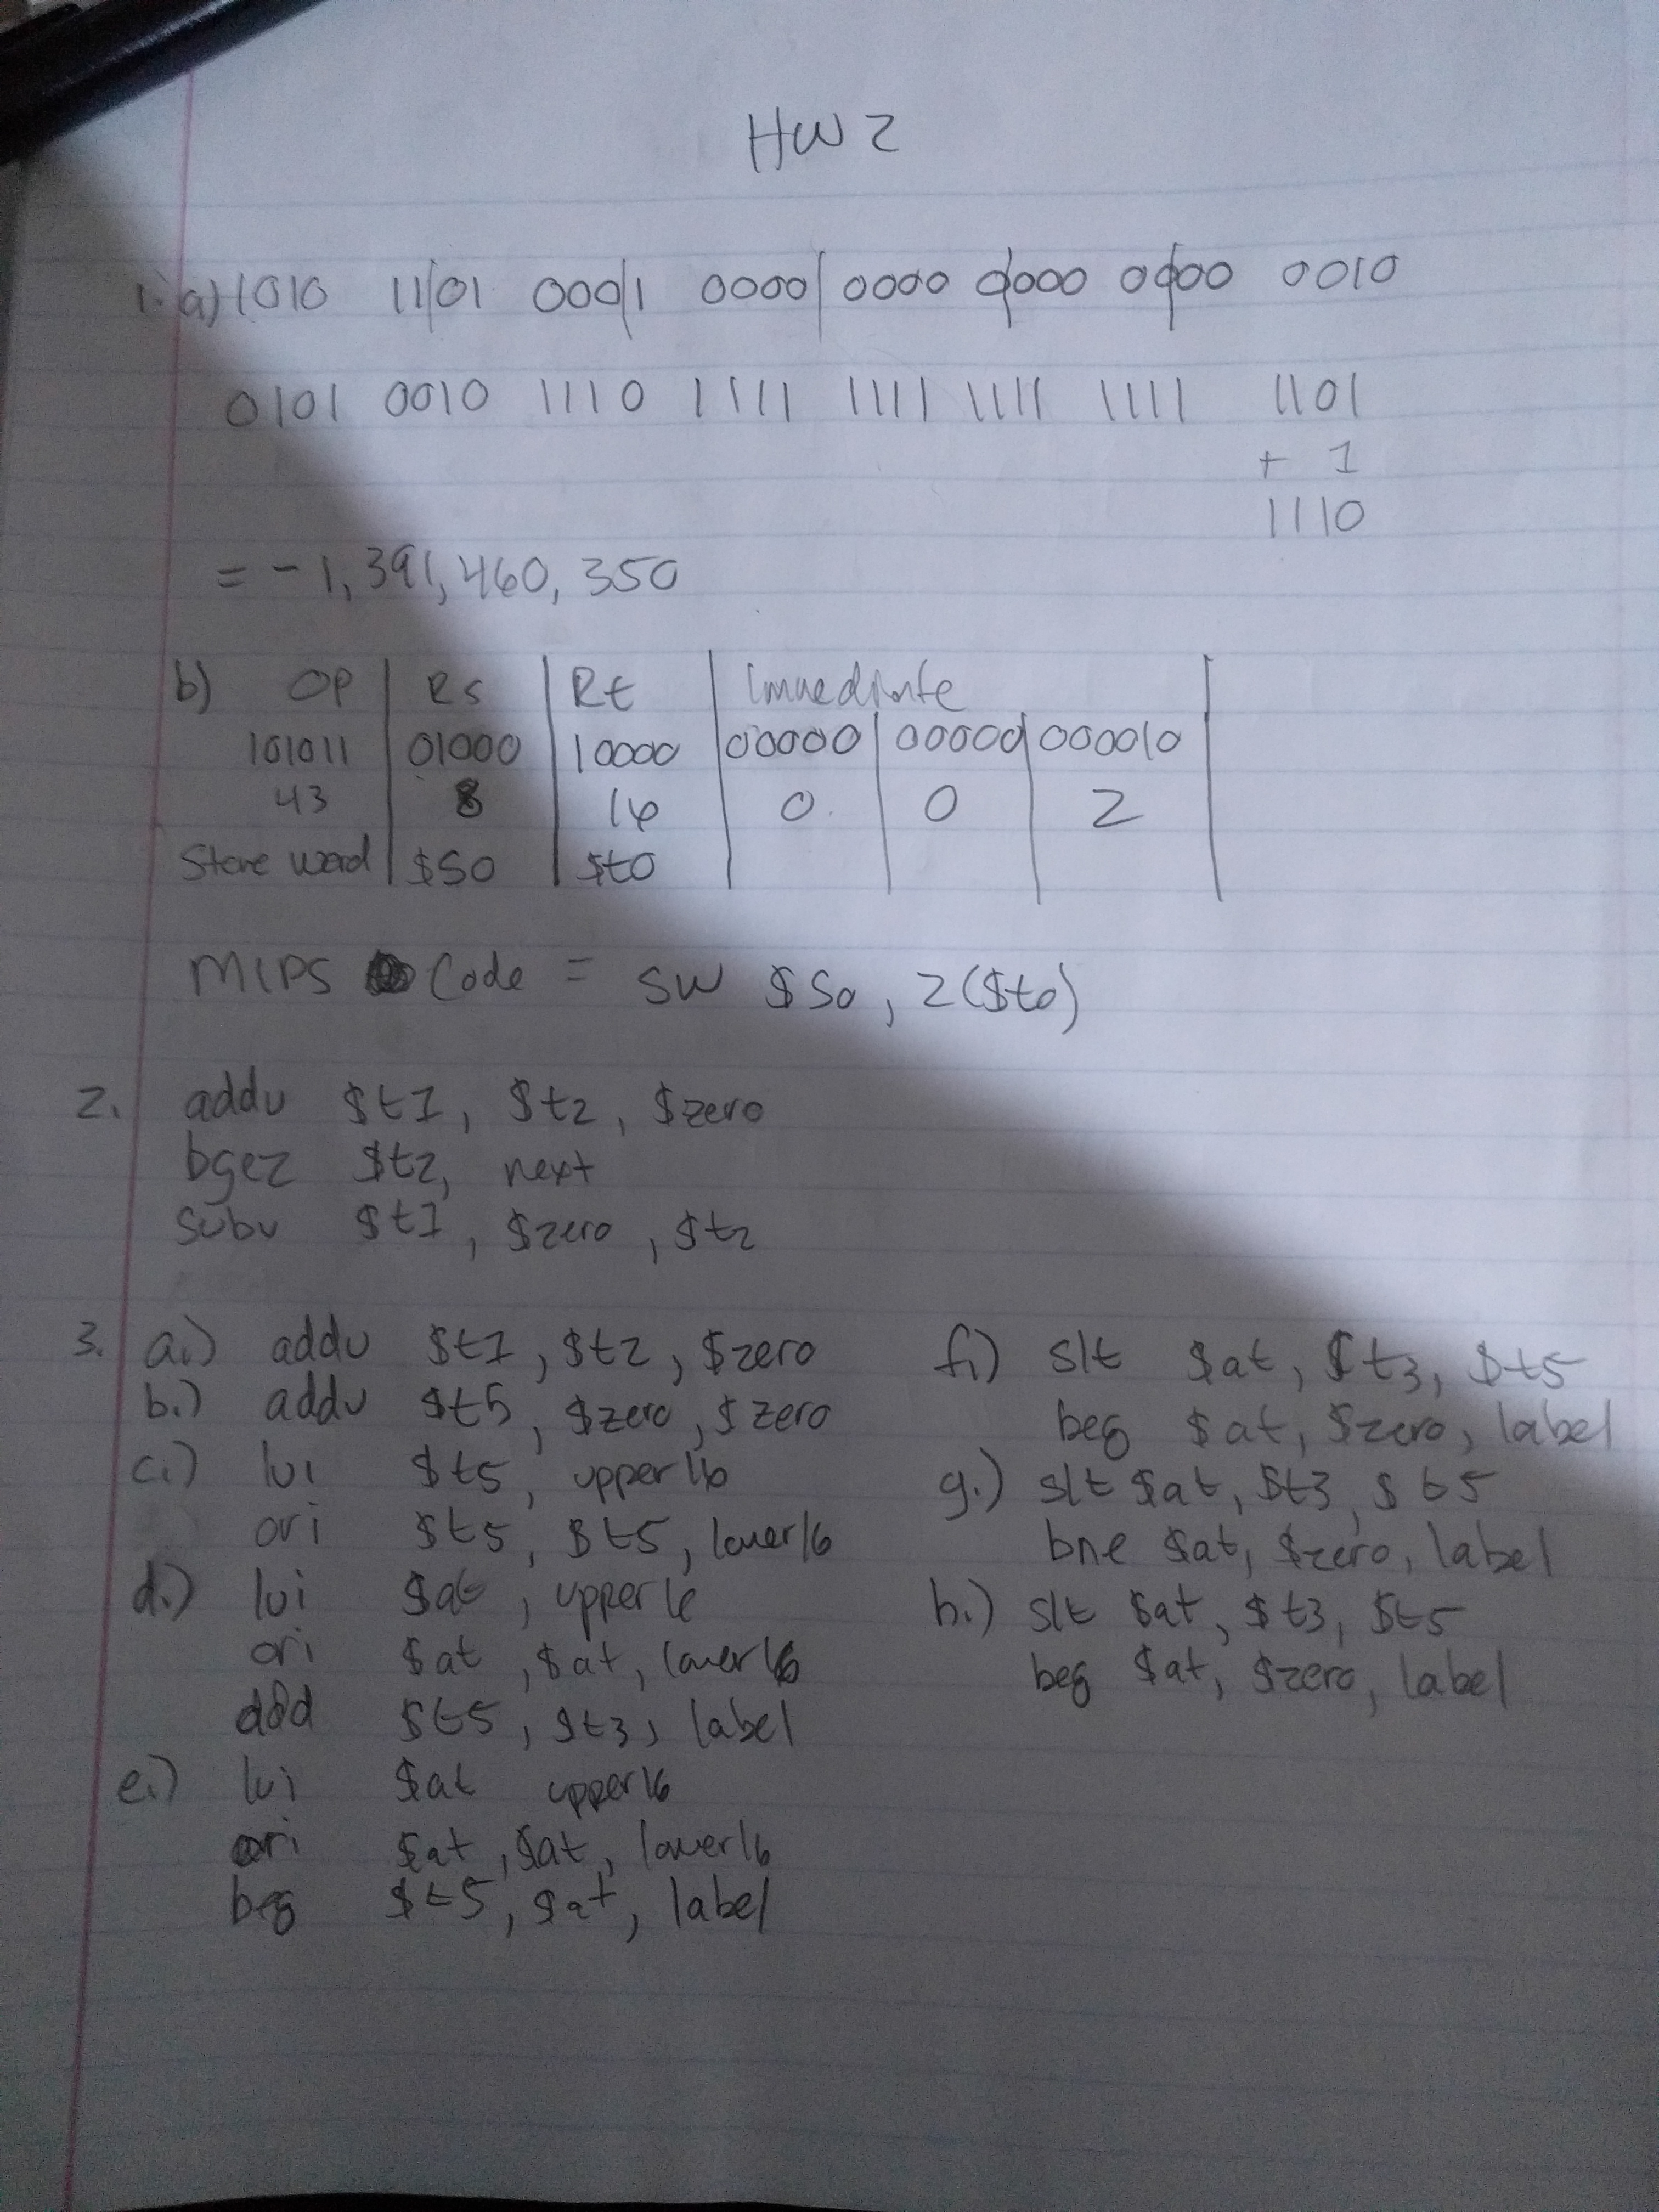 HW 2
1. a) 1010 11|01 000|1 0000| 0000 0000 0000 0010
0101 0010 1110 1111 1111 1111 1111 1101
+ 1
1110
= -1,391,460,350
b) OP | Rs | Rt | Immediate |
101011 | 01000 | 10000 | 00000 | 00000 | 000010 |
43 | 8 | 16 | 0 | 0 | 2
Store word | $S0 | $t0
MIPS Code = SW $S0, 2($t0)
2. addu $t1, $t2, $zero
bgez $t2, next
subu $t1, $zero, $t2
3. a.) addu $t1, $t2, $zero
b.) addu $t5, $zero, $zero
c.) lui $t5, upper16
ori $t5, $t5, lower16
d.) lui $at, upper16
ori $at, $at, lower16
add $t5, $t3, label
e.) lui $at upper16
ori $at, $at, lower16
beq $t5, $at, label
f.) slt $at, $t3, $t5
beq $at, $zero, label
g.) slt $at, $t3, $t5
bne $at, $zero, label
h.) slt $at, $t3, $t5
beq $at, $zero, label